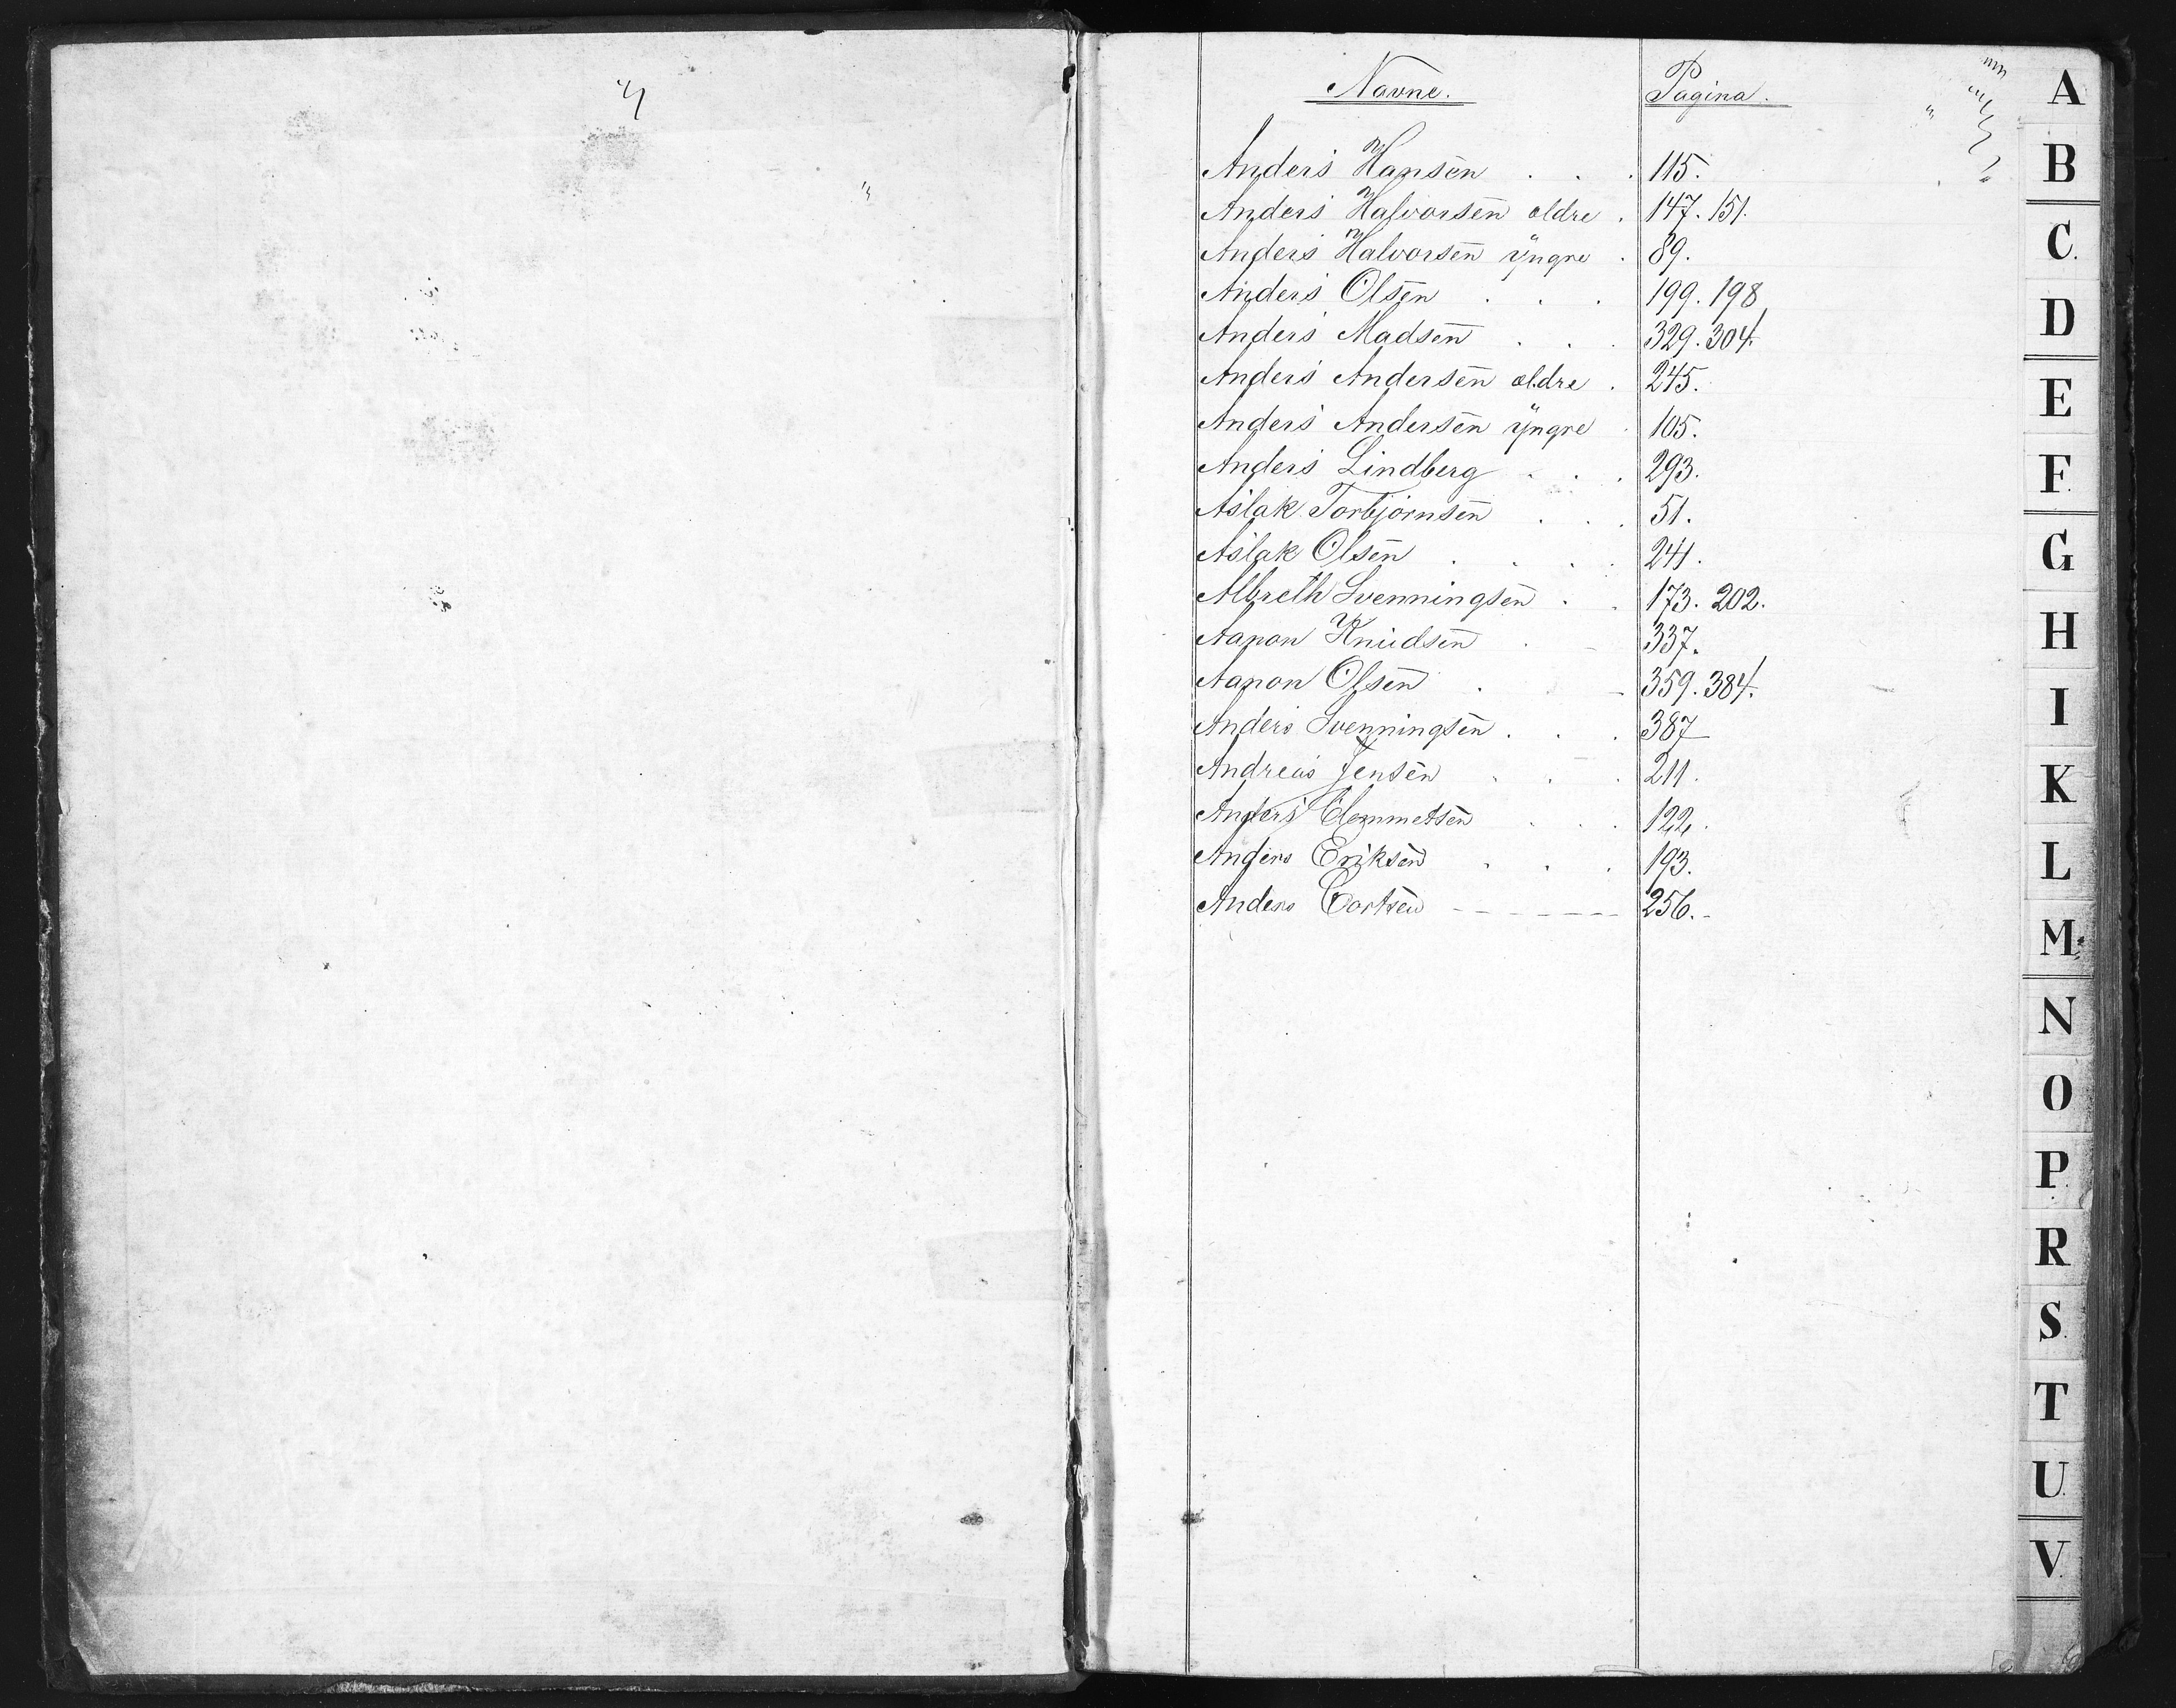 Navne. Pagina.
Anders Hansen . . . 115.
Anders Halvorsen ældre . 147. 151.
Anders Halvorsen yngre . 89.
Anders Olsen . . . 199. 198
Anders Madsen . . . 329. 304.
Anders Andersen ældre . 245.
Anders Andersen yngre . 105.
Anders Lindberg . . . 293.
Aslak Torbjörnsen . . . 51.
Aslak Olsen . . . . 241.
Albreth Svenningsen . . 173. 202.
Aanon Knudsen . - 337.
Aanon Olsen . . - 359. 384.
Anders Svenningsen . . . 387
Andreas Jensen . . . 211.
Anders Clemmetsen . . . 122.
Anders Eriksen . . . 193.
Anders Cortsen - - - - - - 256.-
A
B
C.
D
E
F.
G
H
I
K
L
M
N
O
P.
R
S.
T
U.
V.